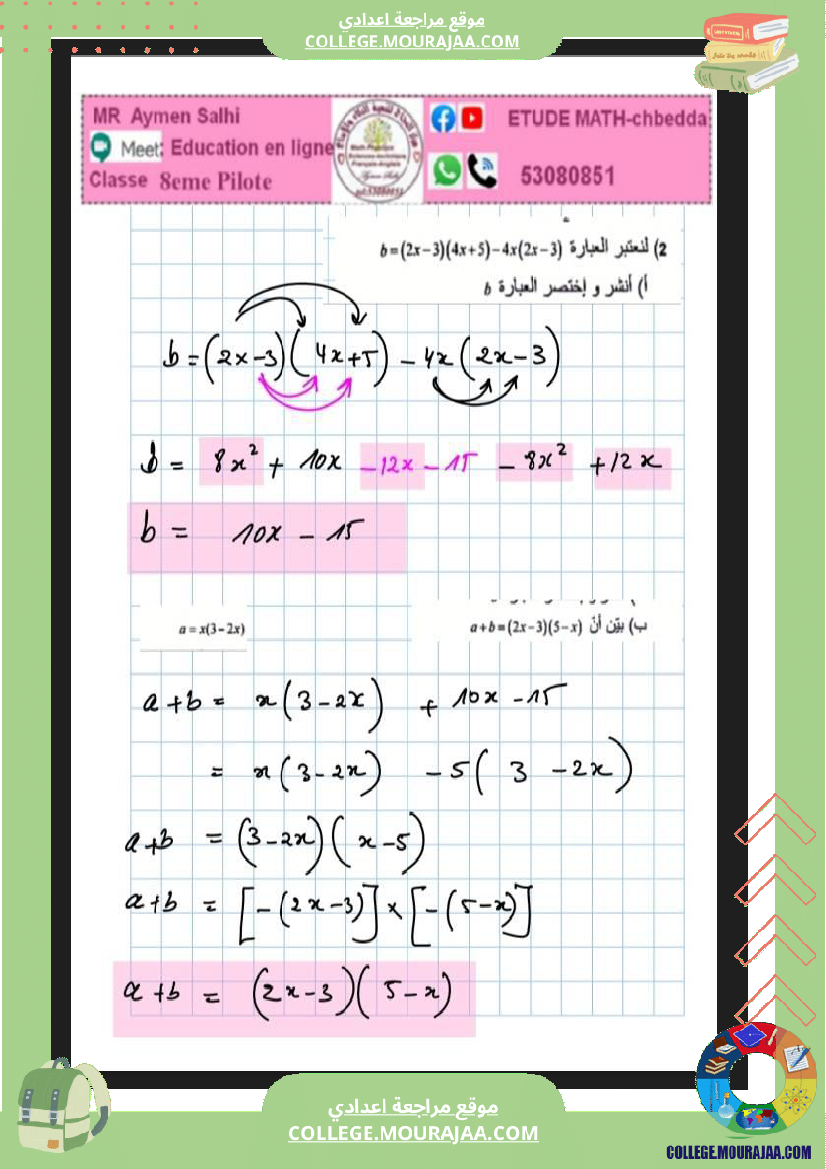 موقع مراجعة اعدادي
COLLEGE.MOURAJAA.COM
MR Aymen Salhi
Meet: Education en ligne
Classe 8eme Pilote
ETUDE MATH-chbedda
53080851
2) لنعتبر العبارة b=(2x-3)(4x+5)-4x(2x-3)
أ) أنشر و إختصر العبارة b
b = (2x-3)(4x+5) - 4x(2x-3)
b = 8x² + 10x - 12x - 15 - 8x² + 12x
b = 10x - 15
ب) بيّن أنّ a+b=(2x-3)(5-x)
a=x(3-2x)
a+b = x(3-2x) + 10x - 15
= x(3-2x) - 5(3-2x)
a+b = (3-2x)(x-5)
a+b = [-(2x-3)]×[-(5-x)]
a+b = (2x-3)(5-x)
موقع مراجعة اعدادي
COLLEGE.MOURAJAA.COM
COLLEGE.MOURAJAA.COM